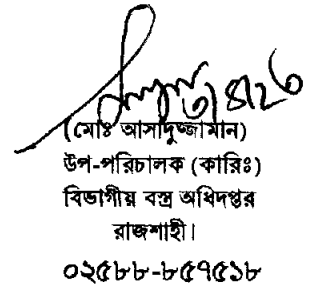 ৩/৪/২৩
(মোঃ আসাদুজ্জামান)
উপ-পরিচালক (কারিঃ)
বিভাগীয় বস্ত্র অধিদপ্তর
রাজশাহী।
০২৫৮৮-৮৫৭৫১৮